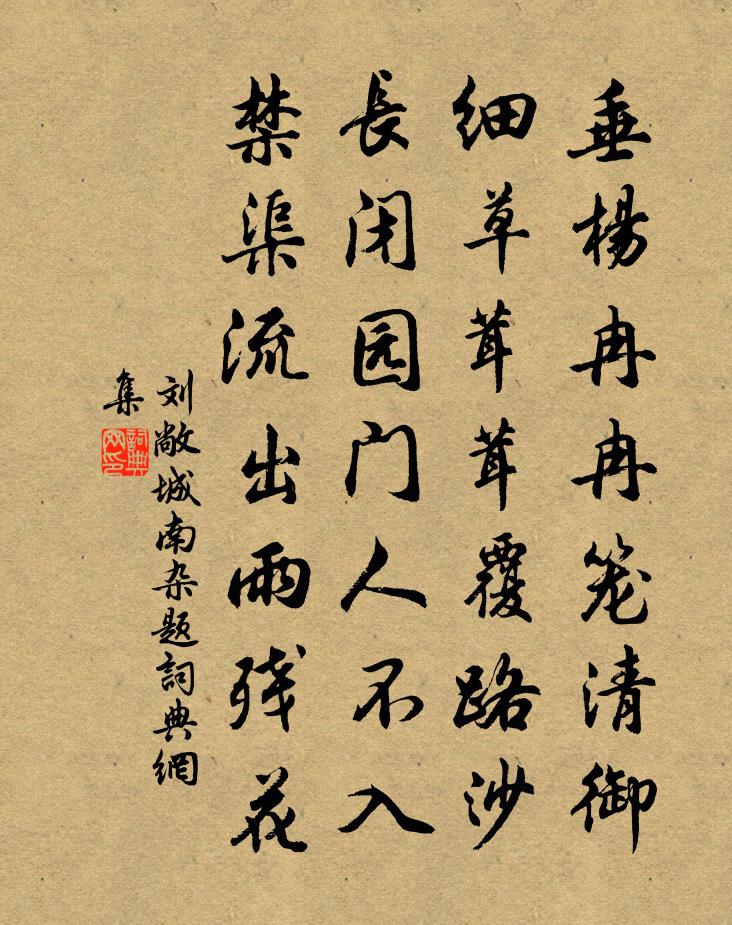 垂楊冉冉笼清御
细草茸茸覆路沙
長闭园门人不入
禁渠流出雨残花
刘敞城南杂题詞典網
集
詞典
网印